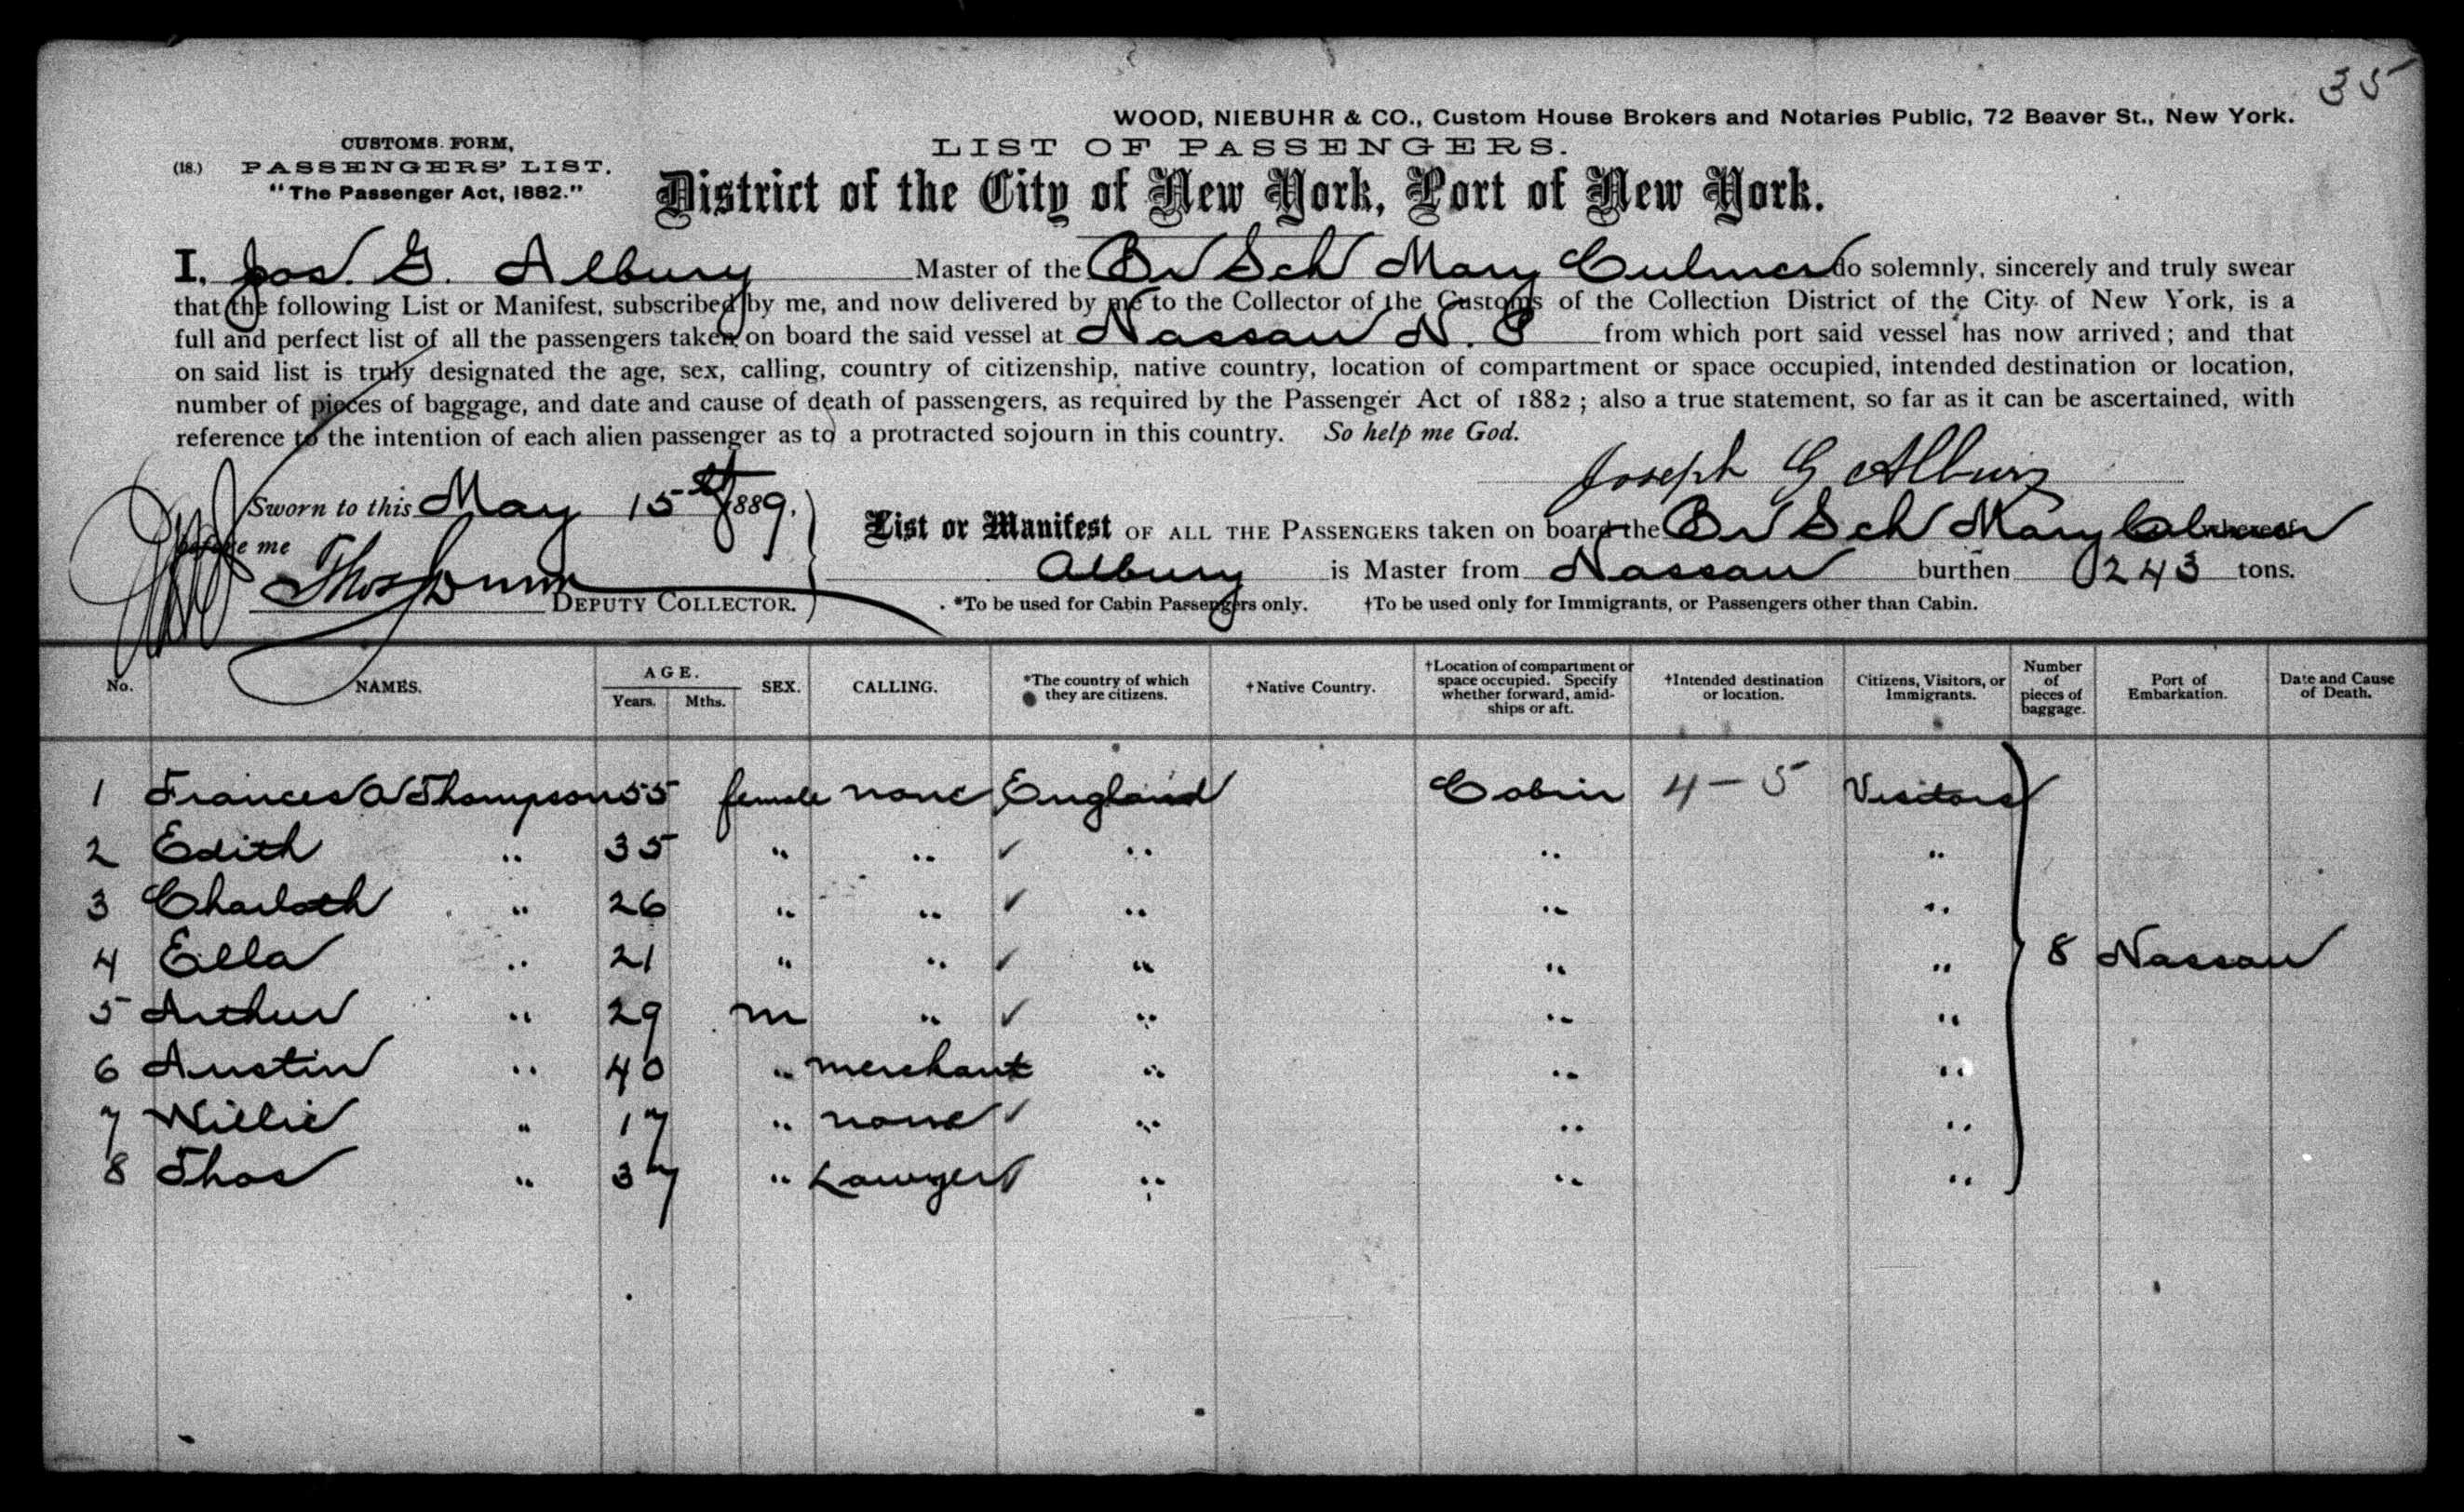 35
WOOD, NIEBUHR & CO., Custom House Brokers and Notaries Public, 72 Beaver St., New York.
CUSTOMS FORM,
(18.) PASSENGERS' LIST.
"The Passenger Act, 1882."
LIST OF PASSENGERS.
District of the City of New York, Port of New York.
I, Jos. G. Albury Master of the Br Sch Mary Culmer do solemnly, sincerely and truly swear
that the following List or Manifest, subscribed by me, and now delivered by me to the Collector of the Customs of the Collection District of the City of New York, is a
full and perfect list of all the passengers taken on board the said vessel at Nassau N. P from which port said vessel has now arrived; and that
on said list is truly designated the age, sex, calling, country of citizenship, native country, location of compartment or space occupied, intended destination or location,
number of pieces of baggage, and date and cause of death of passengers, as required by the Passenger Act of 1882; also a true statement, so far as it can be ascertained, with
reference to the intention of each alien passenger as to a protracted sojourn in this country. So help me God.
Joseph G Albury
Sworn to this May 15 1889.
before me
Thos Dunn
DEPUTY COLLECTOR.
List or Manifest OF ALL THE PASSENGERS taken on board the Br Sch Mary Culmer whereof
Albury is Master from Nassau burthen 243 tons.
*To be used for Cabin Passengers only. †To be used only for Immigrants, or Passengers other than Cabin.
No. NAMES. AGE. Years. Mths. SEX. CALLING. *The country of which they are citizens. †Native Country. †Location of compartment or space occupied. Specify whether forward, amidships or aft. †Intended destination or location. Citizens, Visitors, or Immigrants. Number of pieces of baggage. Port of Embarkation. Date and Cause of Death.
1 Frances A Thompson 55 female none England Cabin 4-5 Visitors
2 Edith " 35 " " ✓ " " "
3 Charloth " 26 " " ✓ " " "
4 Ella " 21 " " ✓ " " " 8 Nassau
5 Arthur " 29 m " ✓ " " "
6 Austin " 40 " merchant " " "
7 Willie " 17 " none ✓ " " "
8 Thos " 37 " Lawyer " " "